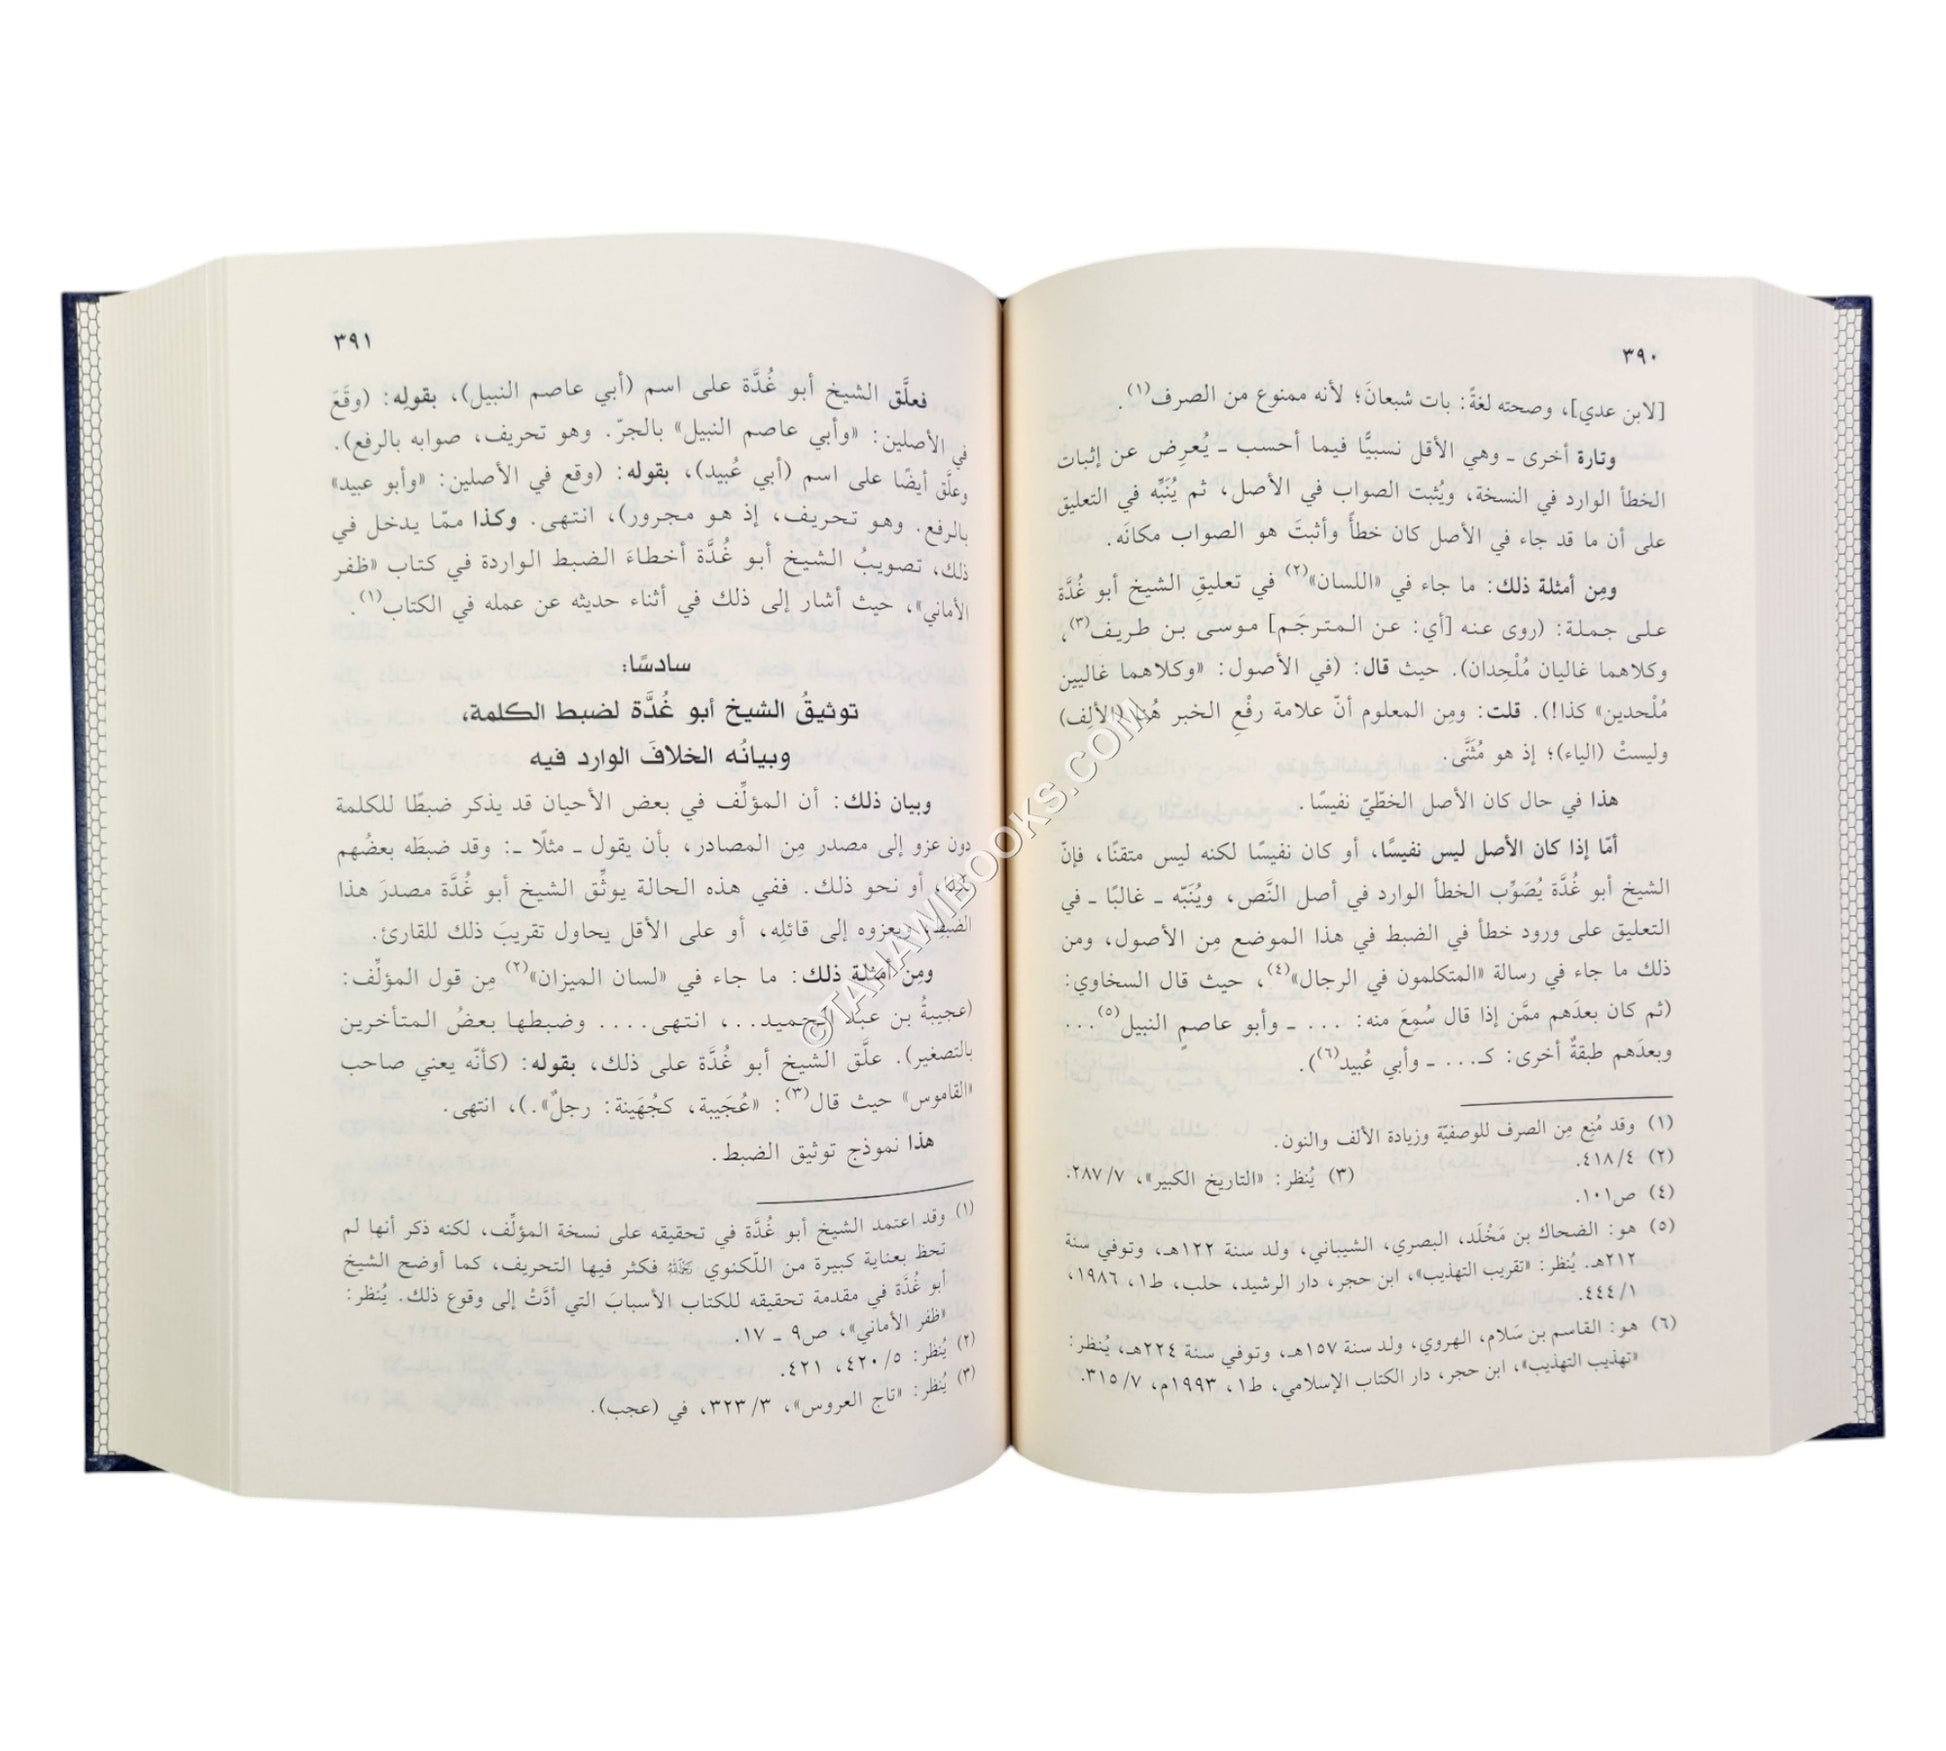 ٣٩٠
[لابن عدي]، وصحته لغةً: بات شبعانَ؛ لأنه ممنوع من الصرف(١).
وتارة أخرى ـ وهي الأقل نسبيًّا فيما أحسب ـ يُعرِض عن إثبات
الخطأ الوارد في النسخة، ويُثبت الصواب في الأصل، ثم يُنَبِّه في التعليق
على أن ما قد جاء في الأصل كان خطأً وأثبتَ هو الصواب مكانَه.
ومِن أمثلة ذلك: ما جاء في «اللسان»(٢) في تعليقِ الشيخ أبو غُدَّة
على جملة: (روى عنه [أي: عن المترجَم] موسى بن طريف(٣)،
وكلاهما غاليان مُلْحِدان). حيث قال: (في الأصول: «وكلاهما غاليين
مُلْحدين» كذا!). قلت: ومِن المعلوم أنّ علامة رفْعِ الخبر هُنا (الألِف)
وليستْ (الياء)؛ إذ هو مُثَنَّى.
هذا في حال كان الأصل الخطّيّ نفيسًا.
أمّا إذا كان الأصل ليس نفيسًا، أو كان نفيسًا لكنه ليس متقنًا، فإنّ
الشيخ أبو غُدَّة يُصَوِّب الخطأ الوارد في أصل النَّص، ويُنَبّه ـ غالبًا ـ في
التعليق على ورود خطأ في الضبط في هذا الموضع مِن الأصول، ومن
ذلك ما جاء في رسالة «المتكلمون في الرجال»(٤)، حيث قال السخاوي:
(ثم كان بعدَهم ممَّن إذا قال سُمعَ منه: ... ـ وأبو عاصمٍ النبيل(٥)...
وبعدَهم طبقةٌ أخرى: كـ... ـ وأبي عُبيد(٦)).
(١) وقد مُنِع مِن الصرف للوصفيّة وزيادة الألف والنون.
(٢) ٤١٨/٤. (٣) يُنظر: «التاريخ الكبير»، ٢٨٧/٧.
(٤) ص١٠١.
(٥) هو: الضحاك بن مَخْلَد، البصري، الشيباني، ولد سنة ١٢٢هـ، وتوفي سنة
٢١٢هـ. يُنظر: «تقريب التهذيب»، ابن حجر، دار الرشيد، حلب، ط١، ١٩٨٦،
٤٤٤/١.
(٦) هو: القاسم بن سَلام، الهروي، ولد سنة ١٥٧هـ، وتوفي سنة ٢٢٤هـ، يُنظر:
«تهذيب التهذيب»، ابن حجر، دار الكتاب الإسلامي، ط١، ١٩٩٣م، ٣١٥/٧.
٣٩١
فعلَّق الشيخ أبو غُدَّة على اسم (أبي عاصم النبيل)، بقولِه: (وقَعَ
في الأصلين: «وأبي عاصم النبيل» بالجرّ. وهو تحريف، صوابه بالرفع).
وعلَّق أيضًا على اسم (أبي عُبيد)، بقوله: (وقع في الأصلين: «وأبو عبيد»
بالرفع. وهو تحريف، إذ هو مجرور)، انتهى. وكذا ممّا يدخل في
ذلك، تصويبُ الشيخ أبو غُدَّة أخطاءَ الضبط الواردة في كتاب «ظفر
الأماني»، حيث أشار إلى ذلك في أثناء حديثه عن عمله في الكتاب(١).
سادسًا:
توثيقُ الشيخ أبو غُدَّة لضبط الكلمة،
وبيانُه الخلافَ الوارد فيه
وبيان ذلك: أن المؤلِّف في بعض الأحيان قد يذكر ضبطًا للكلمة
دون عزو إلى مصدر مِن المصادر، بأن يقول ـ مثلًا ـ: وقد ضبطَه بعضُهم
أو نحو ذلك. ففي هذه الحالة يوثِّق الشيخ أبو غُدَّة مصدرَ هذا
الضبط، ويعزوه إلى قائلِه، أو على الأقل يحاول تقريبَ ذلك للقارئ.
ومِن أمثلة ذلك: ما جاء في «لسان الميزان»(٢) مِن قول المؤلِّف:
(عجيبةُ بن عبد الحميد..، انتهى.... وضبطها بعضُ المتأخرين
بالتصغير). علَّق الشيخ أبو غُدَّة على ذلك، بقوله: (كأنّه يعني صاحب
«القاموس» حيث قال(٣): «عُجَيبة، كجُهَينة: رجلٌ».)، انتهى.
هذا نموذج توثيق الضبط.
(١) وقد اعتمد الشيخ أبو غُدَّة في تحقيقه على نسخة المؤلِّف، لكنه ذكر أنها لم
تحظ بعناية كبيرة من اللّكنوي رَحِمَهُ اللهُ فكثر فيها التحريف، كما أوضح الشيخ
أبو غُدَّة في مقدمة تحقيقه للكتاب الأسبابَ التي أدَّتْ إلى وقوع ذلك. يُنظر:
«ظفر الأماني»، ص٩ ـ ١٧.
(٢) يُنظر: ٤٢٠/٥، ٤٢١.
(٣) يُنظر: «تاج العروس»، ٣٢٣/٣، في (عجب).
©TAHAWIBOOKS.COM